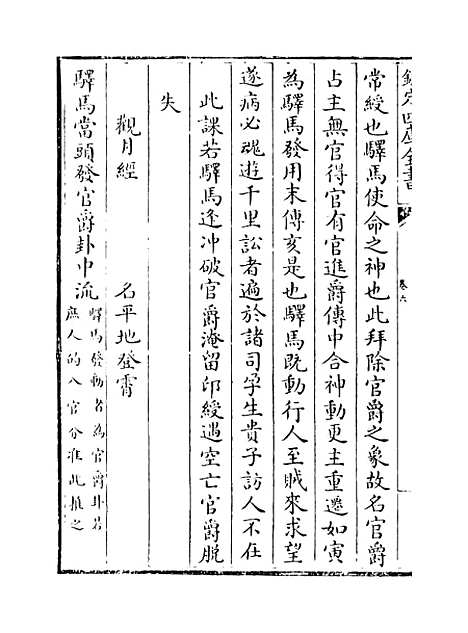 欽定四庫全書
卷六
常綬也驛馬使命之神也此拜除官爵之象故名官爵
占主無官得官有官進爵傳中合神動更主重遷如寅
為驛馬發用末傳亥是也驛馬既動行人至賊來求望
遂病必魂遊千里訟者遍於諸司孕生貴子訪人不在
此課若驛馬逢冲破官爵淹留印綬遇空亡官爵脱
失
觀月經　名平地登霄
驛馬當頭發官爵卦中流
驛馬發動者為官爵卦若
庶人的入官分准此推之